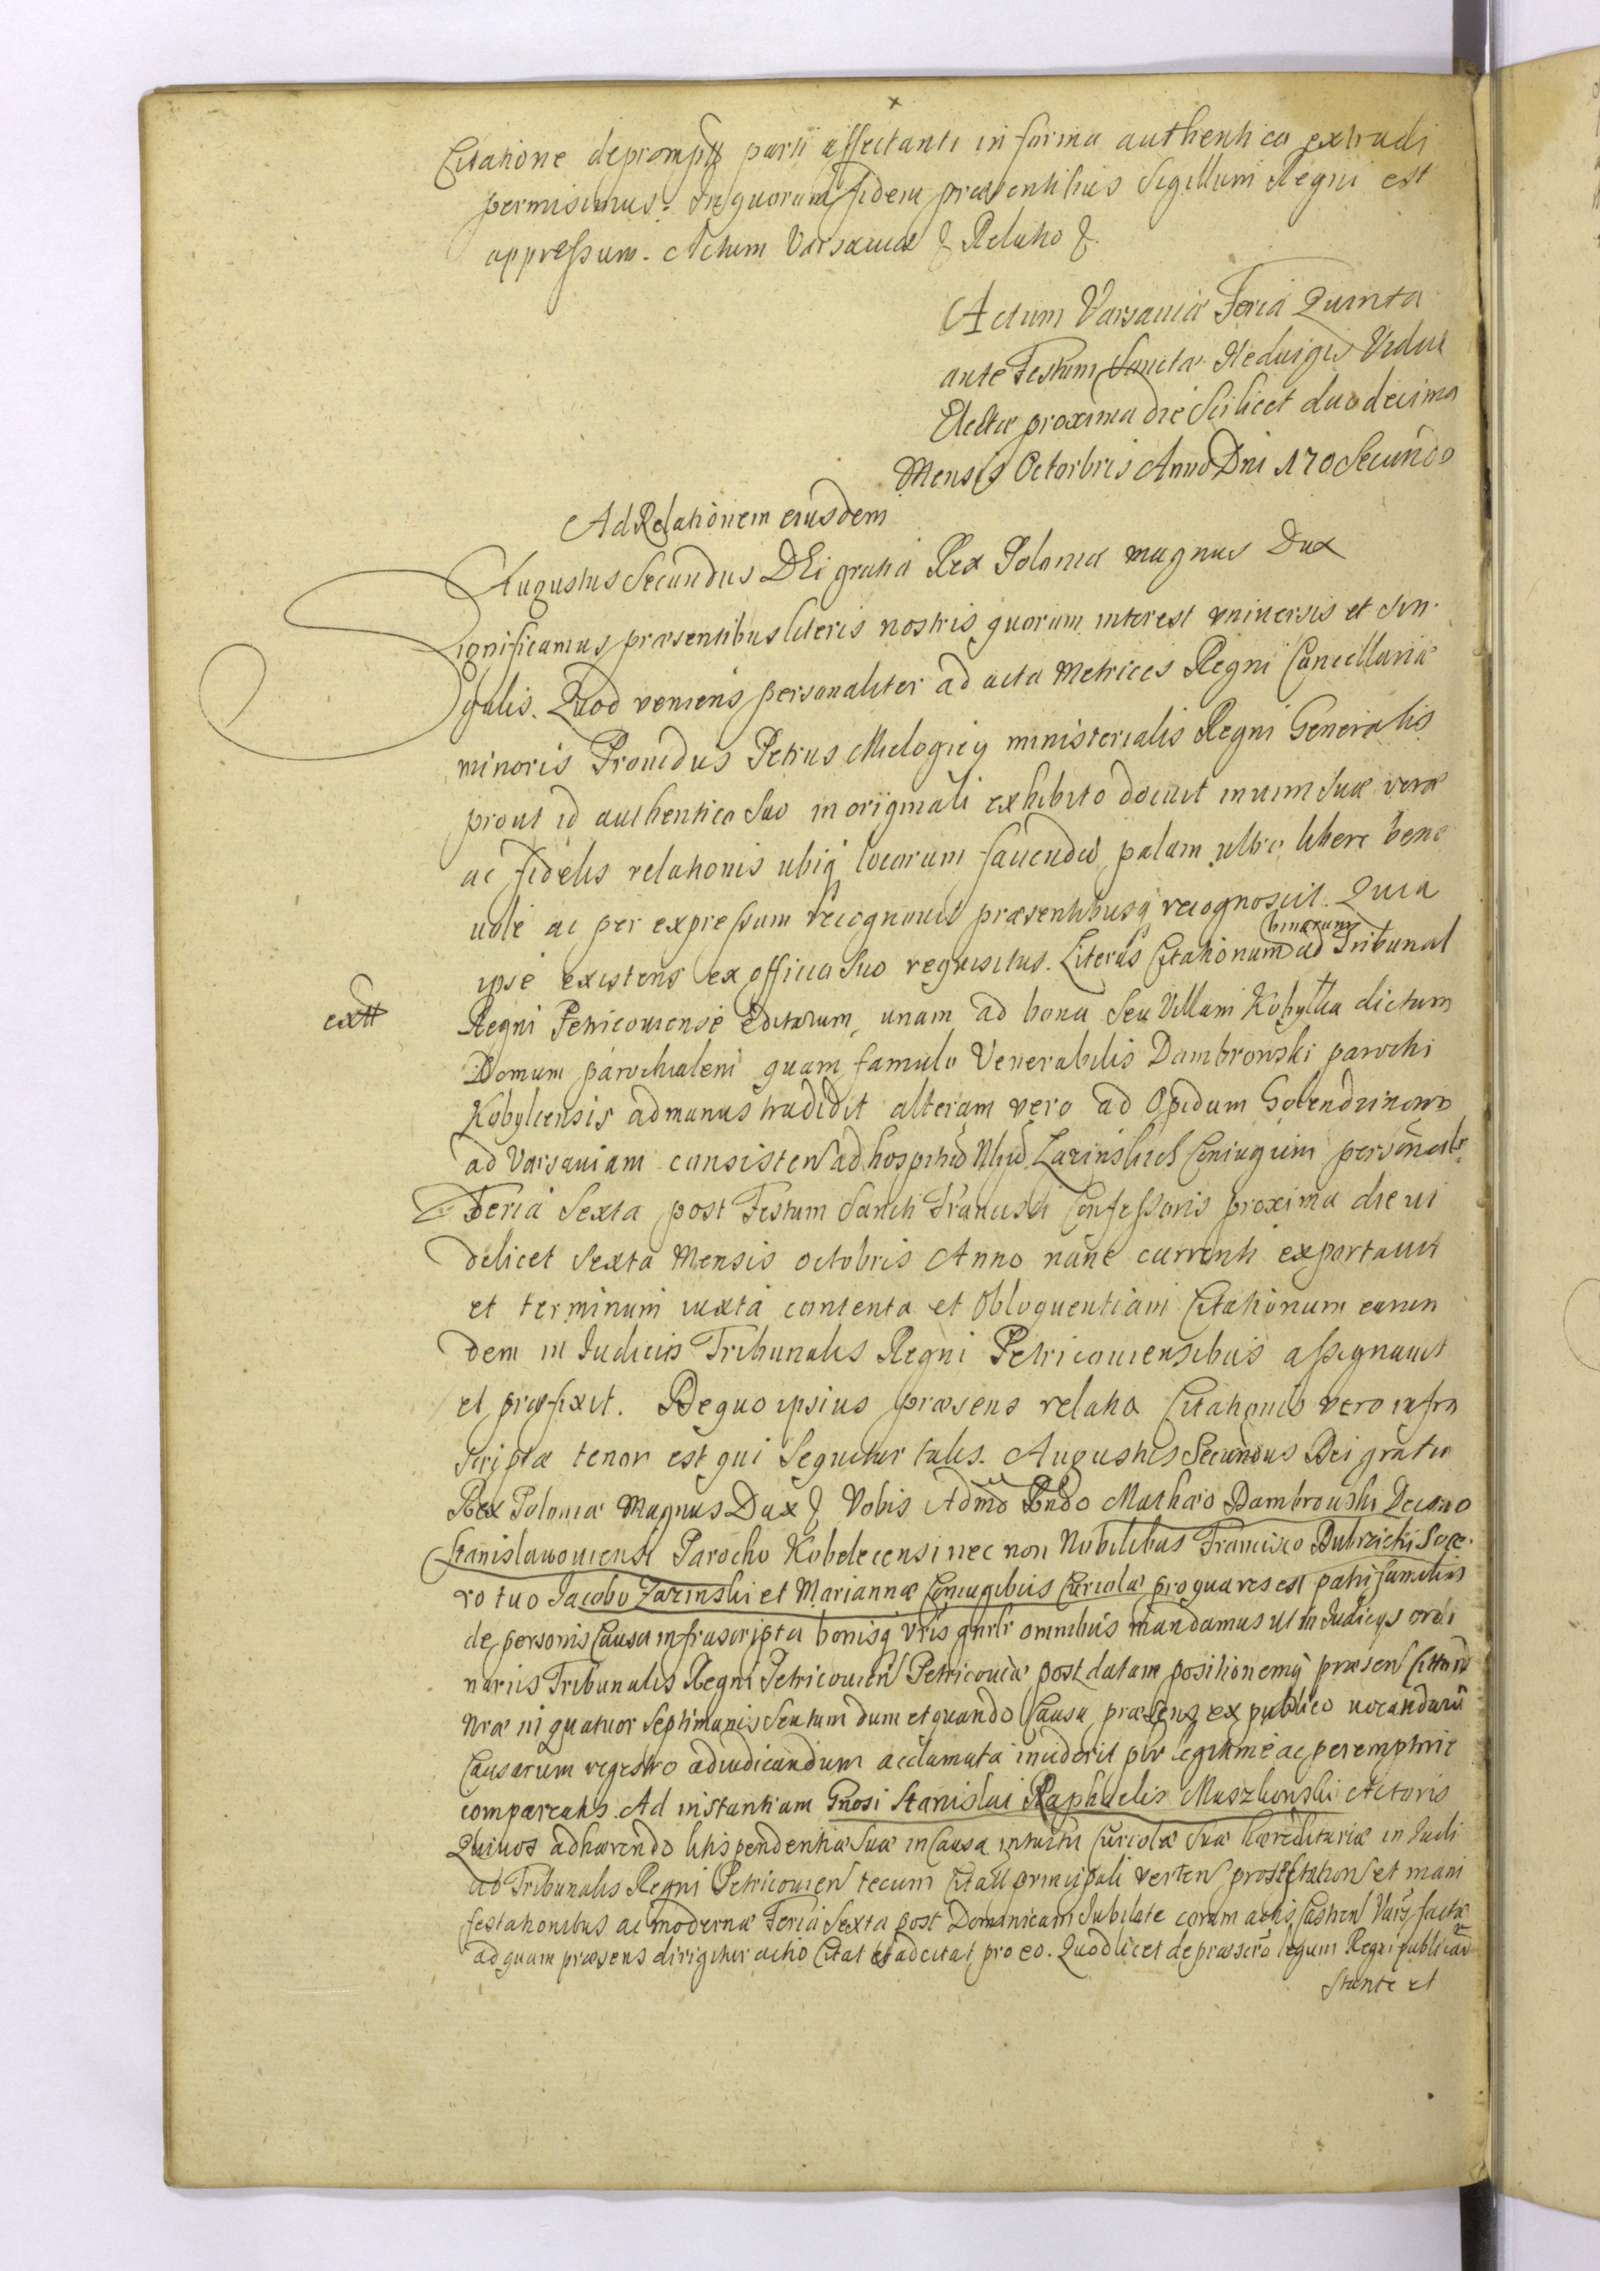 Citatione deprompti parti affectanti in forma authentica extradi
permisimus. In quorum fidem præsentibus Sigillum Regni est
appressum. Actum Varsaviæ & Relatio &.
Actum Varsaviæ Feria Quinta
ante Festum Sanctæ Heduigis Viduæ
Electæ proxima die Scilicet duodecima
Mensis Octorbris Anno Dni 170 Secundo
Ad Relationem eiusdem
Augustus Secundus DEi gratia Rex Poloniæ magnus Dux
Significamus præsentibus literis nostris quorum interest universis et sin
gulis. Quod veniens personaliter ad acta Metrices Regni Cancellariæ
minoris Providus Petrus ministerialis Regni Generalis
prout id authentico suo in originali exhibito docuit in vim suæ veræ
ac fidelis relationis ubiq locorum faciendæ palam ultro libere bene
vole ac per expressum recognovit præsentibusq recognoscit. Quia
ipse existens ex officio suo requisitus. Literas Citationum binarum ad Tribunal
extt
Regni Petricouiense Editarum, unam ad bona seu Villam Kobyłka dictum
Domum parochialem quam famulo Venerabilis Dambrowski parochi
Kobylcensis ad manus tradidit alteram vero ad Opidum Golendzinowo
ad Varsaviam consisten ad hospitiũ Coniugum personalr
Feria Sexta post Festum Sancti Francisci Confessoris proxima die vi
delicet Sexta Mensis octobris Anno nunc currenti exportavit
et terminum iuxta contenta et Obloquentiam Citationum earun
dem in Iudiciis Tribunalis Regni Petricouiensibus assignavit
et præfixit. De quo ipsius præsens relatio Citationis vero infra
scriptæ tenor est qui sequitur talis. Augustus Secundus Dei gratia
Rex Poloniæ Magnus Dux & Vobis Admo Rndo Mathæo Dambrowski Decano
Stanislawouiensi Parocho Kobelecensi nec non Nobilibus Francisco Dubrzicki Soce
ro tuo Jacobo Zarinski et Mariannæ Coniugibus Curiolæ pro qua res est patrifamilias
de personis Causa infrascripta bonisq vris gnrlr omnibus mandamus ut in Iudicys ordi
nariis Tribunalis Regni Petricouien Petricouiæ post datam positionemq præsen
nræ in quatuor septimanis Scutum dum et quando Causa præsens ex publico vocandarũ
Causarum regestro adiudicandum acclamata inciderit per legitime ac peremptorie
compareatis. Ad instantiam Gnosi Stanislai Raphaelis Muszkowski Actoris
Qui vos adhærendo litispendentiæ suæ in Causa intuitu Curiolæ suæ hæreditariæ in Iudi
Tribunalis Regni Petricouien tecum principali verten protestation et mani
festationibus ac modernæ Feria Sexta post Dominicam Iubilate coram actis Castren Vars factæ
ad quam præsens dirigitur actio Citat et adcitat pro eo. Quod licet de præscro legum Regni publicarũ
stante et